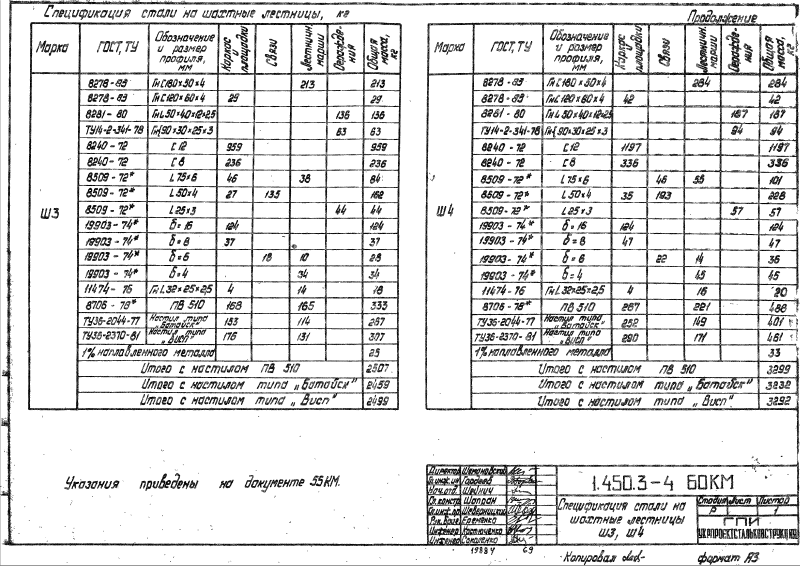 Спецификация стали на шахтные лестницы, кг
Продолжение
Марка ГОСТ, ТУ Обозначение и размер профиля, мм Корпус и площадки Связи Лестничн. марши Ограждения Общая масса, кг
Ш3
8278-83 Гн С180×50×4 213 213
8278-83 Гн С120×60×4 29 29
8281-80 136 136
ТУ14-2-341-78 63 63
8240-72 С12 959 959
8240-72 С8 236 236
8509-72* L75×6 46 38 84
8509-72* L50×4 27 135 162
8509-72* L25×3 44 44
19903-74* δ=16 124 124
19903-74* δ=8 37 37
19903-74* δ=6 18 10 28
19903-74* δ=4 34 34
11474-76 Гн L32×25×2,5 4 14 18
8706-78* ПВ 510 168 165 333
ТУ36-2044-77 Настил типа „Батайск" 153 114 267
ТУ36-2370-81 Настил типа „Висп" 176 131 307
1% наплавленного металла 25
Итого с настилом ПВ 510 2507
Итого с настилом типа „Батайск" 2459
Итого с настилом типа „Висп" 2499
Марка ГОСТ, ТУ Обозначение и размер профиля, мм Корпус и площадки Связи Лестничн. марши Ограждения Общая масса, кг
Ш4
8278-83 Гн С180×50×4 284 284
8278-83 Гн С120×60×4 42 42
8281-80 187 187
ТУ14-2-341-78 94 94
8240-72 С12 1197 1197
8240-72 С8 336 336
8509-72* L75×6 46 55 101
8509-72* L50×4 35 193 228
8509-72* L25×3 57 57
19903-74* δ=16 124 124
19903-74* δ=8 47 47
19903-74* δ=6 22 14 36
19903-74* δ=4 45 45
11474-76 Гн L32×25×2,5 4 16 20
8706-78* ПВ 510 267 221 488
ТУ36-2044-77 Настил типа „Батайск" 252 149 401
ТУ36-2370-81 Настил типа „Висп" 290 171 461
1% наплавленного металла 33
Итого с настилом ПВ 510 3299
Итого с настилом типа „Батайск" 3232
Итого с настилом типа „Висп" 3292
Указания приведены на документе 55КМ.
Директор
Гл.инж.ин Гордеев
Нач.отд. Шейнич
Гл.констр. Шапран
Рук.бриг. Еременко
Инженер
Инженер Соколенко
1988г
69
1.450.3-4 60КМ
Спецификация стали на шахтные лестницы Ш3, Ш4
Стадия Лист Листов
Р 1
ГПИ
УКРПРОЕКТСТАЛЬКОНСТРУКЦИЯ
Копировал
формат А3